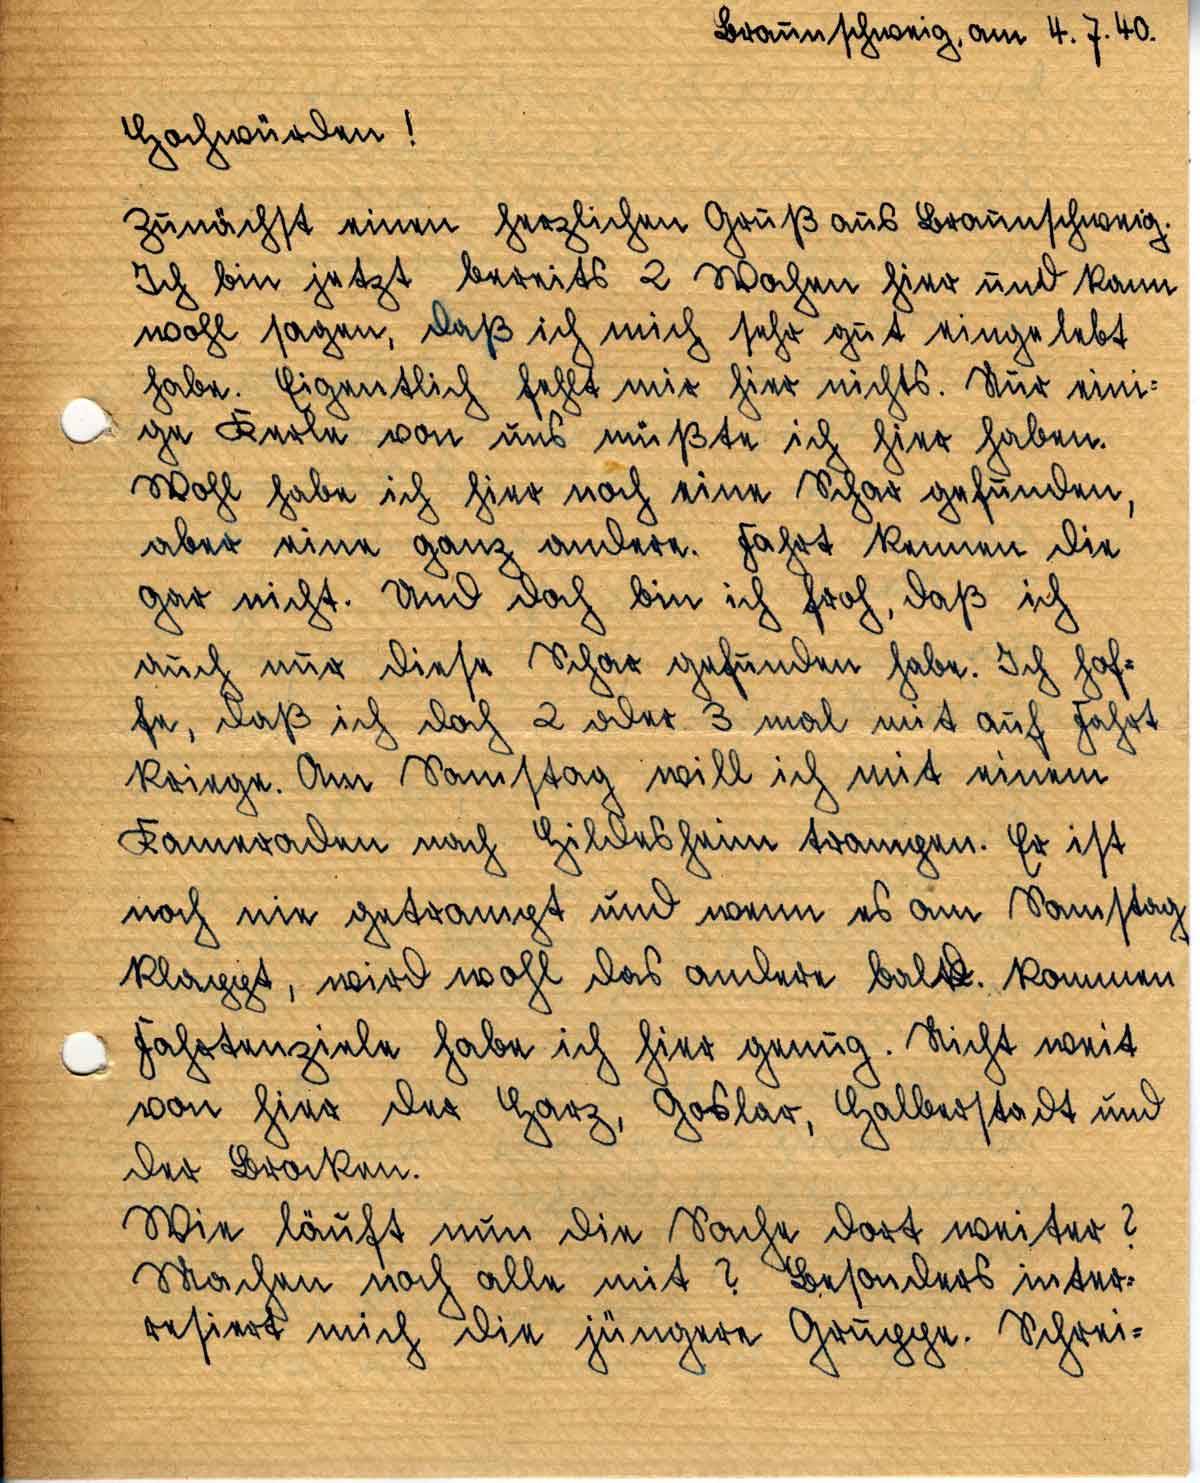 Braunschweig, am 4.7.40.
Hochwürden!
Zunächst einen herzlichen Gruß aus Braunschweig.
Ich bin jetzt bereits 2 Wochen hier und kann
wohl sagen, daß ich mich sehr gut eingelebt
habe. Eigentlich fehlt mir hier nichts. Nur eini=
ge Kerle von uns müßte ich hier haben.
Wohl habe ich hier noch eine Schar gefunden,
aber eine ganz andere. Fahrt kennen die
gar nicht. Und doch bin ich froh, daß ich
auch nur diese Schar gefunden habe. Ich hof=
fe, daß ich doch 2 oder 3 mal mit auf Fahrt
kriege. Am Samstag will ich mit einem
Kameraden nach Hildesheim trampen. Er ist
noch nie getrampt und wenn es am Samstag
klappt, wird wohl das andere bald. kommen
Fahrtenziele habe ich hier genug. Nicht weit
von hier der Harz, Goslar, Halberstadt und
der Brocken.
Wie läuft nun die Sache dort weiter?
Machen noch alle mit? Besonders inter=
resiert mich die jüngere Gruppe. Schrei=